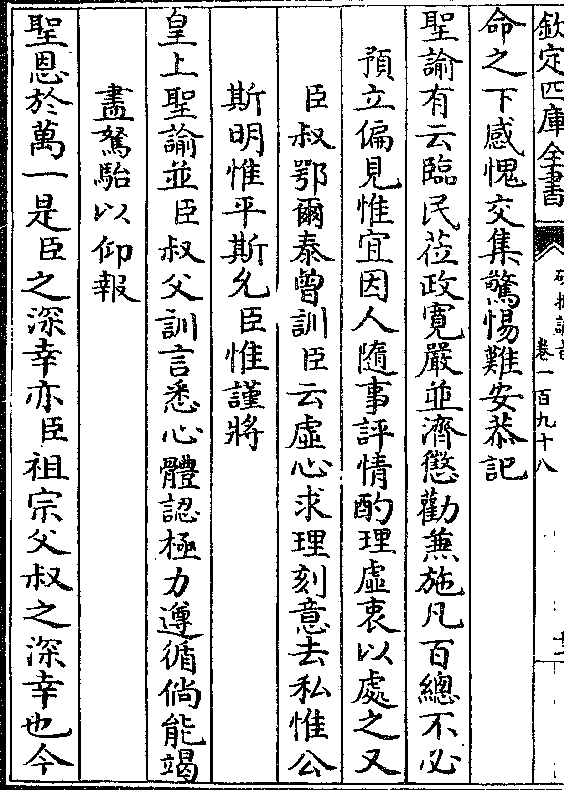 欽定四庫全書
硃批諭旨
卷一百九十八
命之下感愧交集驚惕難安恭記
聖諭有云臨民蒞政寛嚴並濟懲勸蕪施凡百總不必
預立偏見惟宜因人隨事評情酌理虛衷以處之又
臣叔鄂爾泰曾訓臣云虛心求理刻意去私惟公
斯明惟平斯允臣惟謹將
皇上聖諭並臣叔父訓言悉心體認極力遵循倘能竭
盡駑駘以仰報
聖恩於萬一是臣之深幸亦臣祖宗父叔之深幸也今